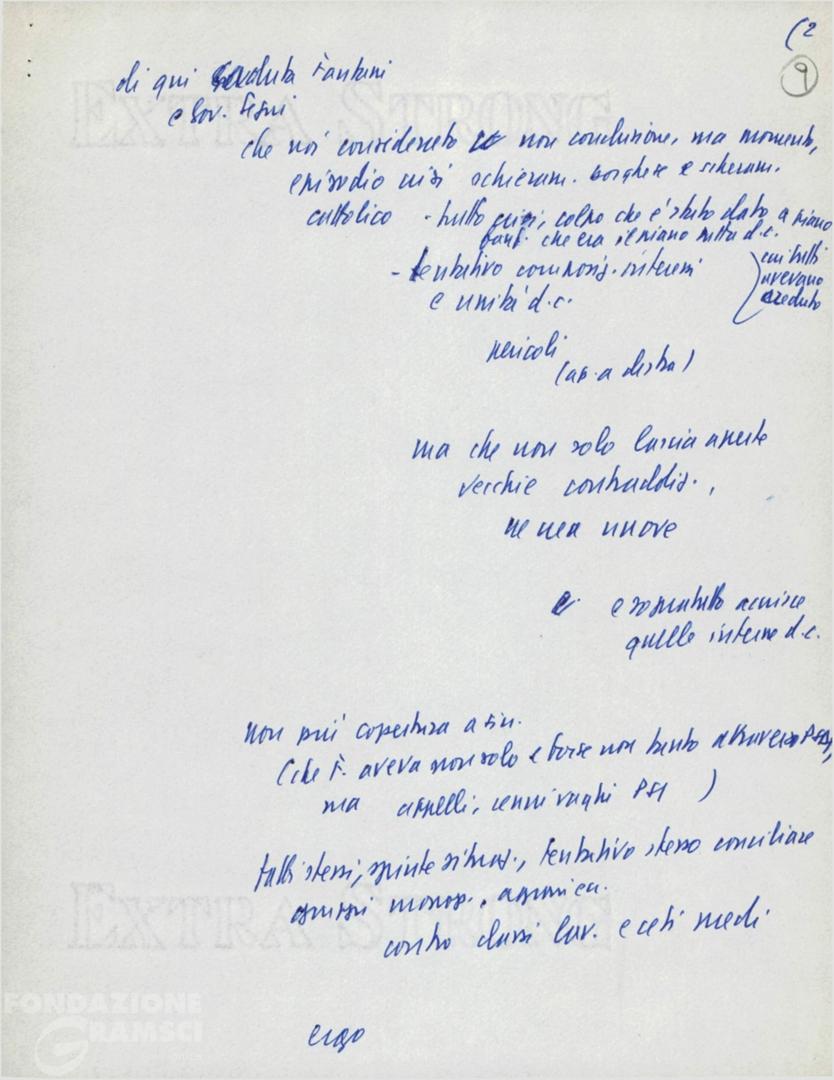 (2
9
di qui caduta Fanfani
e Gov. Segni
che noi considerato non conclusione, ma momento,
episodio crisi schieram. borghese e schieram.
cattolico - tutto crisi, colpo che è stato dato a piano
Fanf. che era il piano tutta d.c.
- tentativo composiz. interessi
e unità d.c.
cui tutti
avevano
creduto
pericoli
(ap. a destra)
ma che non solo lascia aperte
vecchie contraddiz.,
ne crea nuove
e sopratutto acuisce
quelle interne d.c.
non più copertura a sin.
(che F. aveva non solo e forse non tanto attraverso PSDI,
ma appelli, cenni vaghi PSI)
fatti stessi, spinte situaz., tentativo stesso conciliare
gruppi monop.,
contro classi lav. e ceti medi
ergo
EXTRA STRONG
EXTRA STRONG
FONDAZIONE
GRAMSCI